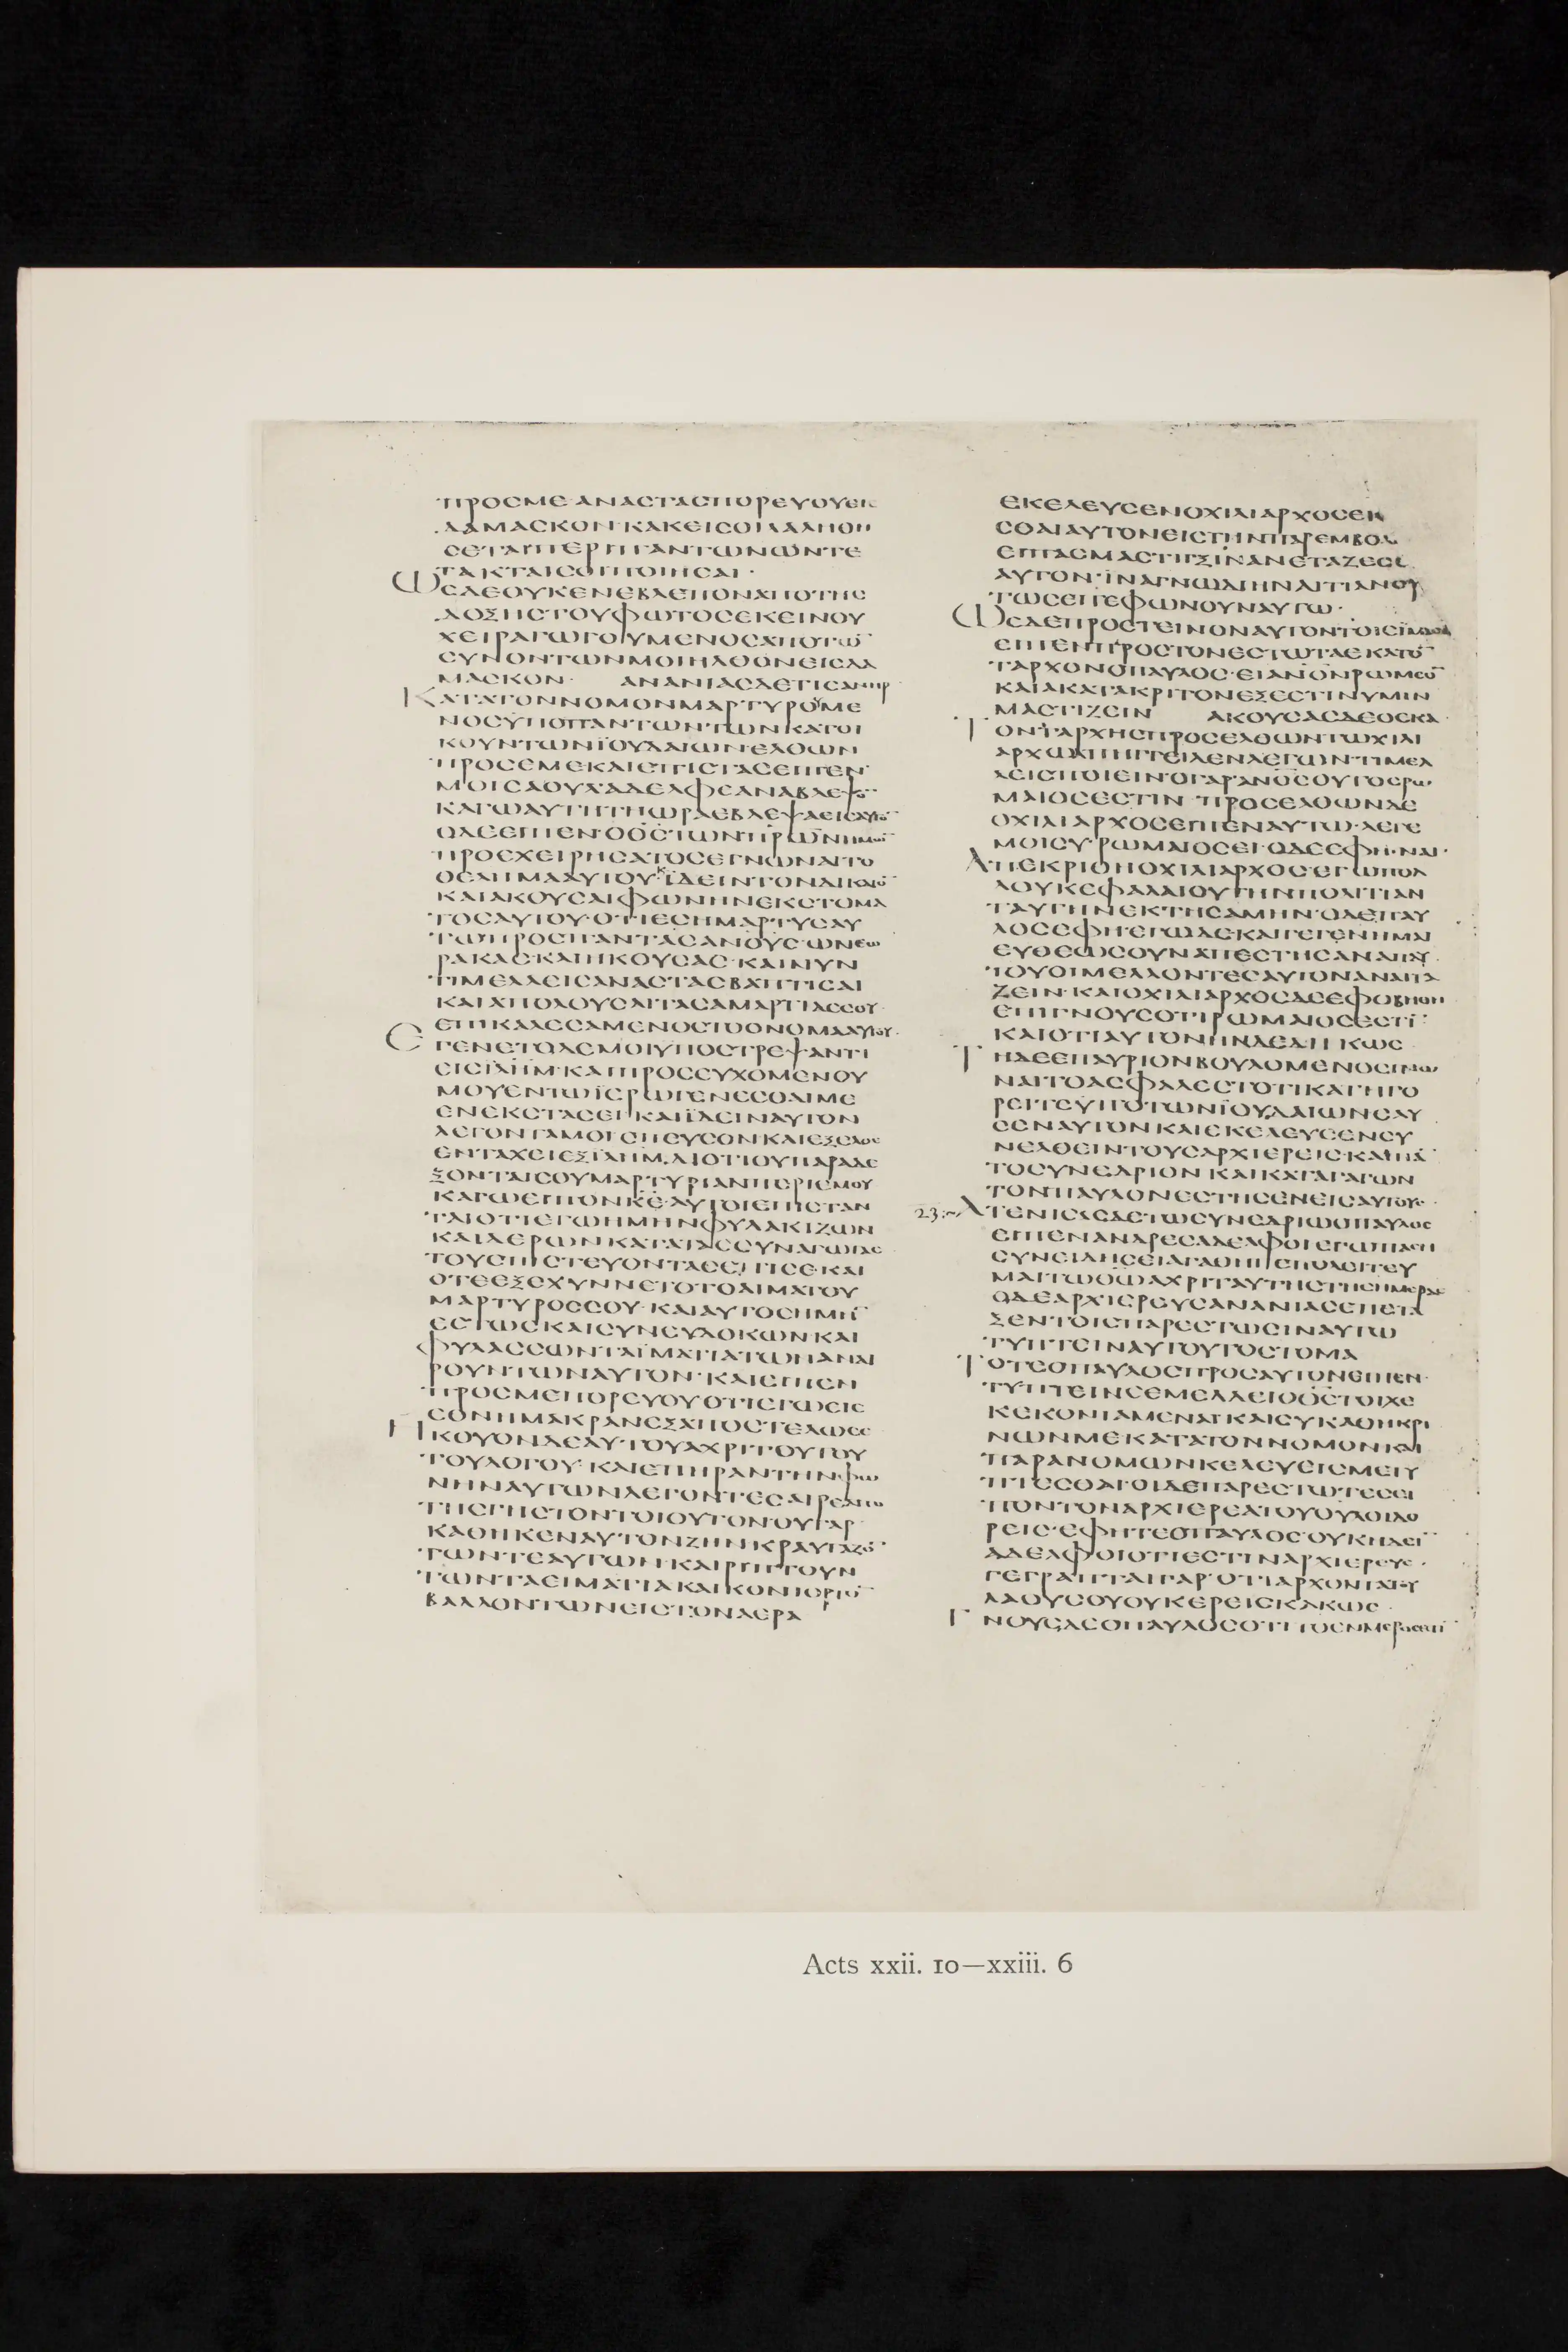 ΠΡΟΣΜΕ·ΑΝΑСΤΑСΠΟΡΕΥΟΥΕΙС
ΔΑΜΑСΚΟΝ·ΚΑΚΕΙСΟΙΛΑΛΗΘΗ
СΕΤΑΙΠΕΡΙΠΑΝΤΩΝΩΝΤΕ
ΤΑΚΤΑΙСΟΙΠΟΙΗСΑΙ·
ΩСΔΕΟΥΚΕΝΕΒΛΕΠΟΝΑΠΟΤΗС
ΔΟΞΗСΤΟΥΦΩΤΟСΕΚΕΙΝΟΥ
ΧΕΙΡΑΓΩΓΟΥΜΕΝΟСΑΠΟΤΩ̅
СΥΝΟΝΤΩΝΜΟΙΗΛΘΟΝΕΙСΔΑ
ΜΑСΚΟΝ· ΑΝΑΝΙΑСΔΕΤΙСΑΝΗΡ
ΚΑΤΑΤΟΝΝΟΜΟΝΜΑΡΤΥΡΟΥΜΕ
ΝΟСΥΠΟΠΑΝΤΩΝΤΩΝΚΑΤΟΙ
ΚΟΥΝΤΩΝΪΟΥΔΑΙΩΝ·ΕΛΘΩΝ
ΠΡΟСΕΜΕΚΑΙΕΠΙСΤΑСΕΙΠΕΝ
ΜΟΙСΑΟΥΛ·ΑΔΕΛΦΕΑΝΑΒΛΕΨΟ̅
ΚΑΓΩΑΥΤΗΤΗΩΡΑΕΒΛΕΨΑΕΙСΑΥΤΟ̅
ΟΔΕΕΙΠΕΝ·ΟΘ̅С̅ΤΩΝΠΡ̅Ω̅Ν̅ΗΜΩ̅
ΠΡΟΕΧΕΙΡΗСΑΤΟСΕΓΝΩΝΑΙΤΟ
ΘΕΛΗΜΑΑΥΤΟΥ·ΚΪΔΕΙΝΤΟΝΔΙΚΑΙΟ̅
ΚΑΙΑΚΟΥСΑΙΦΩΝΗΝΕΚСΤΟΜΑ
ΤΟСΑΥΤΟΥ·ΟΤΙΕСΗΜΑΡΤΥСΑΥ
ΤΩΠΡΟСΠΑΝΤΑСΑΝΟΥС·ΩΝΕΩ
ΡΑΚΑС·ΚΑΙΗΚΟΥСΑС·ΚΑΙΝΥΝ
ΤΙΜΕΛΛΕΙСΑΝΑСΤΑСΒΑΠΤΙСΑΙ
ΚΑΙΑΠΟΛΟΥСΑΙΤΑСΑΜΑΡΤΙΑССΟΥ·
ΕΠΙΚΑΛΕСΑΜΕΝΟСΤΟΟΝΟΜΑΑΥΤΟΥ·
ΕΓΕΝΕΤΟΔΕΜΟΙΥΠΟСΤΡΕΨΑΝΤΙ
ΕΙСΙΛ̅Η̅Μ̅·ΚΑΙΠΡΟСΕΥΧΟΜΕΝΟΥ
ΜΟΥΕΝΤΩΪΕΡΩΓΕΝΕСΘΑΙΜΕ
ΕΝΕΚСΤΑСΕΙ·ΚΑΙΪΔΕΙΝΑΥΤΟΝ
ΛΕΓΟΝΤΑΜΟΙ·СΠΕΥСΟΝΚΑΙΕΞΕΛΘΕ
ΕΝΤΑΧΕΙΕΞΙΛ̅Η̅Μ̅·ΔΙΟΤΙΟΥΠΑΡΑΔΕ
ΞΟΝΤΑΙСΟΥΜΑΡΤΥΡΙΑΝΠΕΡΙΕΜΟΥ
ΚΑΓΩΕΙΠΟΝΚ̅Ε̅·ΑΥΤΟΙΕΠΙСΤΑΝ
ΤΑΙΟΤΙΕΓΩΗΜΗΝΦΥΛΑΚΙΖΩΝ
ΚΑΙΔΕΡΩΝΚΑΤΑΤΑССΥΝΑΓΩΓΑС
ΤΟΥСΠΙСΤΕΥΟΝΤΑСΕΠΙСΕ·ΚΑΙ
ΟΤΕΕΞΕΧΥΝΝΕΤΟΤΟΑΙΜΑΤΟΥ
ΜΑΡΤΥΡΟССΟΥ·ΚΑΙΑΥΤΟСΗΜΗ̅
ΕСΤΩСΚΑΙСΥΝΕΥΔΟΚΩΝΚΑΙ
ΦΥΛΑССΩΝΤΑΪΜΑΤΙΑΤΩΝΑΝΑΙ
ΡΟΥΝΤΩΝΑΥΤΟΝ·ΚΑΙΕΙΠΕΝ
ΠΡΟСΜΕΠΟΡΕΥΟΥΟΤΙΕΓΩΕΙС
ΕΘΝΗΜΑΚΡΑΝΕΞΑΠΟСΤΕΛΩСΕ
ΗΚΟΥΟΝΔΕΑΥΤΟΥΑΧΡΙΤΟΥΤΟΥ
ΤΟΥΛΟΓΟΥ·ΚΑΙΕΠΗΡΑΝΤΗΝΦΩ
ΝΗΝΑΥΤΩΝΛΕΓΟΝΤΕС·ΑΙΡΕΑΠΟ
ΤΗСΓΗСΤΟΝΤΟΙΟΥΤΟΝ·ΟΥΓΑΡ
ΚΑΘΗΚΕΝΑΥΤΟΝΖΗΝ·ΚΡΑΥΓΑΖΟ̅
ΤΩΝΤΕΑΥΤΩΝ·ΚΑΙΡΙΠΤΟΥΝ
ΤΩΝΤΑΕΙΜΑΤΙΑΚΑΙΚΟΝΙΟΡΤΟ̅
ΒΑΛΛΟΝΤΩΝΕΙСΤΟΝΑΕΡΑ
ΕΚΕΛΕΥСΕΝΟΧΙΛΙΑΡΧΟСΕΙС
ΕΠΑСΜΑСΤΙΓΞΙΝΑΝΕΤΑΖΕСΘ
ΑΥΤΟΝ·ΪΝΑΓΝΩΔΙΗΝΑΙΤΙΑΝΟΥ
ΤΩСΕΠΕΦΩΝΟΥΝΑΥΤΩ·
ΕΙΠΕΝΠΡΟСΤΟΝΕСΤΩΤΑΕΚΑΤΟ̅
ΤΑΡΧΟΝΟΠΑΥΛΟС·ΕΙΑΝ̅Ο̅Ν̅ΡΩΜΕΟ̅
ΚΑΙΑΚΑΤΑΚΡΙΤΟΝΕΞΕСΤΙΝΥΜΙΝ
ΜΑСΤΙΖΕΙΝ ΑΚΟΥСΑСΔΕΟΕΚΑ
ΤΟΝΤΑΡΧΗСΠΡΟСΕΛΘΩΝΤΩΧΙΛΙ
ΑΡΧΩΑΠΗΓΓΕΙΛΕΝΛΕΓΩΝ·ΤΙΜΕΛ
ΛΕΙСΠΟΙΕΙΝ·ΟΓΑΡΑΝΟ̅С̅ΟΥΤΟСΡΩ
ΜΑΙΟСΕСΤΙΝ·ΠΡΟСΕΛΘΩΝΔΕ
ΟΧΙΛΙΑΡΧΟСΕΙΠΕΝΑΥΤΩ·ΛΕΓΕ
ΜΟΙСΥ·ΡΩΜΑΙΟСΕΙ·ΟΔΕΕΦΗ·ΝΑΙ·
ΑΠΕΚΡΙΘΗΟΧΙΛΙΑΡΧΟС·ΕΓΩΠΟΛ
ΛΟΥΚΕΦΑΛΑΙΟΥΤΗΝΠΟΛΙΤΙΑΝ
ΤΑΥΤΗΝΕΚΤΗСΑΜΗΝ·ΟΔΕΠΑΥ
ΛΟСΕΦΗ·ΕΓΩΔΕ·ΚΑΙΓΕΓΕΝΗΜΑΙ
ΕΥΘΕΩСΟΥΝΑΠΕСΤΗСΑΝΑΠΑΥ
ΤΟΥΟΙΜΕΛΛΟΝΤΕСΑΥΤΟΝΑΝΑΙΤΑ
ΖΕΙΝ·ΚΑΙΟΧΙΛΙΑΡΧΟСΔΕΕΦΟΒΗΘΗ
ΕΠΙΓΝΟΥСΟΤΙΡΩΜΑΙΟСΕСΤΙ̅·
ΚΑΙΟΤΙΑΥΤΟΝΗΝΔΕΔΗΚΩС
ΤΗΔΕΕΠΑΥΡΙΟΝΒΟΥΛΟΜΕΝΟСΓΝΩ
ΝΑΙΤΟΑСΦΑΛΕСΤΟΤΙΚΑΤΗΓΟ
ΡΕΙΤΕΥΠΟΤΩΝΪΟΥΔΑΙΩΝΕΛΥ
СΕΝΑΥΤΟΝΚΑΙΕΚΕΛΕΥСΕΝСΥ
ΝΕΛΘΕΙΝΤΟΥСΑΡΧΙΕΡΕΙС·ΚΑΙΠΑ̅
ΤΟСΥΝΕΔΡΙΟΝ·ΚΑΙΚΑΤΑΓΑΓΩΝ
ΤΟΝΠΑΥΛΟΝΕСΤΗСΕΝΕΙСΑΥΤΟΥС·
23:~ΑΤΕΝΙСΑСΔΕΤΩСΥΝΕΔΡΙΩΟΠΑΥΛΟС
ΕΙΠΕΝΑΝΔΡΕСΑΔΕΛΦΟΙΕΓΩΠΑСΗ
СΥΝΕΙΔΗСΕΙΑΓΑΘΗΠΕΠΟΛΕΙΤΕΥ
ΜΑΙΤΩΘ̅Ω̅ΑΧΡΙΤΑΥΤΗСΤΗСΗΜΕΡΑС
ΟΔΕΑΡΧΙΕΡΕΥСΑΝΑΝΙΑСΕΠΕΤΑ
ΞΕΝΤΟΙСΠΑΡΕСΤΩСΙΝΑΥΤΩ
ΤΥΠΤΕΙΝΑΥΤΟΥΤΟСΤΟΜΑ
ΤΟΤΕΟΠΑΥΛΟСΠΡΟСΑΥΤΟΝΕΙΠΕΝ·
ΤΥΠΤΕΙΝСΕΜΕΛΛΕΙΟΘ̅С̅ΤΟΙΧΕ
ΚΕΚΟΝΙΑΜΕΝΑΙ·ΚΑΙСΥΚΑΘΗΚΡΙ
ΝΩΝΜΕΚΑΤΑΤΟΝΝΟΜΟΝΚΑΙ
ΠΑΡΑΝΟΜΩΝΚΕΛΕΥΕΙСΜΕΤΥ
ΠΤΕСΘΑΙ·ΟΙΔΕΠΑΡΕСΤΩΤΕСΕΙ
ΠΟΝΤΟΝΑΡΧΙΕΡΕΑΤΟΥΘΥΛΟΙΔΟ
ΡΕΙС·ΕΦΗΤΕΟΠΑΥΛΟС·ΟΥΚΗΔΕΙ̅
ΑΔΕΛΦΟΙΟΤΙΕСΤΙΝΑΡΧΙΕΡΕΥС·
ΓΕΓΡΑΠΤΑΙΓΑΡ·ΟΤΙΑΡΧΟΝΤΑΤΟΥ
ΛΑΟΥСΟΥΟΥΚΕΡΕΙСΚΑΚΩС·
ΓΝΟΥСΔΕΟΠΑΥΛΟСΟΤΙΤΟΕΝΜΕΡΟСΕСΤΙ̅
Acts xxii. 10—xxiii. 6